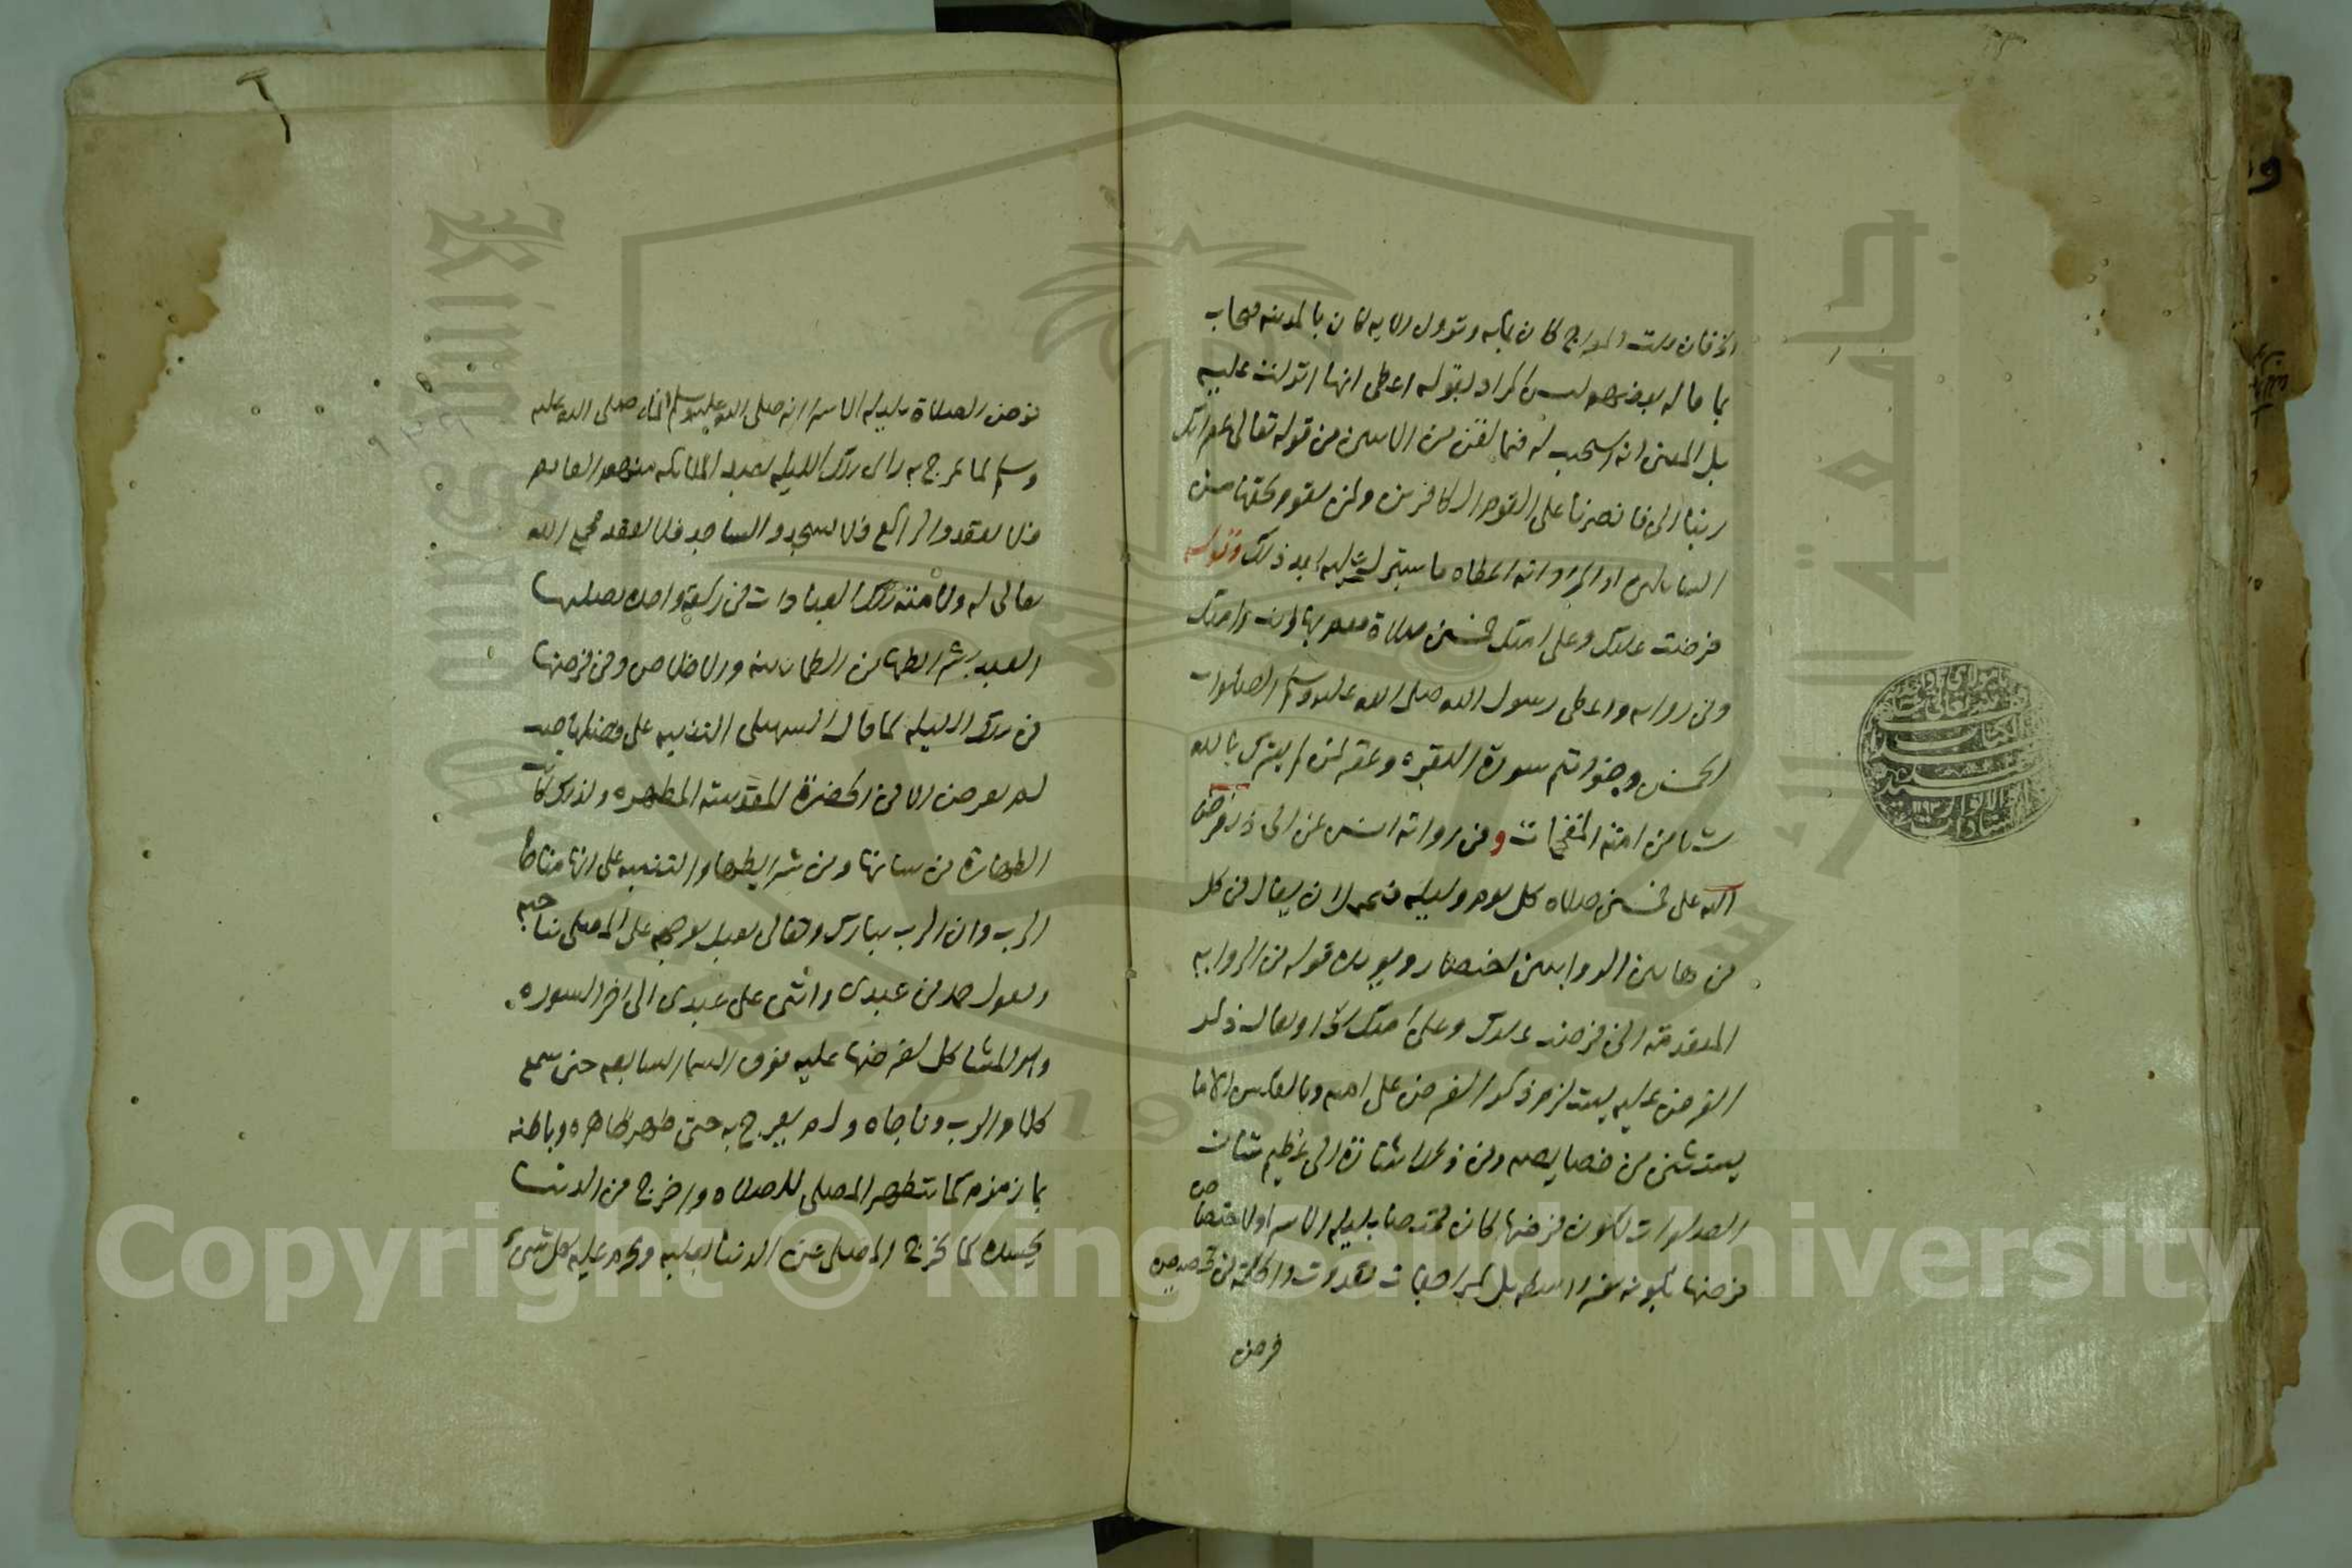 بما قاله بعضهم ليس المراد بقوله اعطى انها انزلت عليه
بل المعنى انه استجيب له فيما لقن من الايتين من قوله تعالى غفرانك
ربنا الى فانصرنا على القوم الكافرين ولمن يقوم بحقها من
فرضت عليك وعلى امتك خمسين صلاة فقم بها انت وامتك
وفي رواية واعطى رسول الله صلى الله عليه وسلم الصلوات
الخمس وخواتيم سورة البقرة وغفر لمن لم يشرك بالله
شيئا من امته المقحمات وفي رواية انس عن ابى ذر ففرض
الله على خمسين صلاة كل يوم وليلة فيحتمل ان يقال في كل
من هاتين الروايتين اختصار ويؤيده قوله في الرواية
المتقدمة انى فرضت عليك وعلى امتك او يقال ذكر
الفرض عليه يستلزم ذكر الفرض على امته وبالعكس الا ما
يستثنى من خصايصه وفي ذكر اشارة الى عظيم شان
الصلوات لكون فرضها كان مختصا بليلة الاسرا ولاختصاص
فرضها بكونه بغير واسطة بل بمراجعات تعددت والحكمة في تخصيص
فرض
فرض الصلاة بليلة الاسرا انه صلى الله عليه وسلم
وسلم لما عرج به راى تلك الليلة تعبد الملائكة منهم القايم
فلا يقعد والراكع فلا يسجد والساجد فلا يقعد فجمع الله
تعالى له ولامته تلك العبادات في ركعة واحدة يصليها
العبد بشرايطها من الطمانينة والاخلاص وفي فرضها
في تلك الليلة كما قال السهيلى التنبيه على فضلها حيث
لم يفرض الا في الحضرة المقدسة المطهرة ولذلك كانت
الطهارة من شانها ومن شرايطها والتنبيه على انها مناجاة
الرب وان الرب تبارك وتعالى يقبل بوجهه على المصلى يناجيه
ويقول حمدنى عبدى واثنى على عبدى الى اخر السورة
وهو المشاكل لفرضها عليه فوق السما السابعة حتى سمع
كلام الرب وناجاه ولم يعرج به حتى طهر ظاهره وباطنه
بما زمزم كما يتطهر المصلى للصلاة واخرج من الدنيا
بجسده كما يخرج المصلى عن الدنيا بقلبه وحرم عليه كل شىء
Copyright © King Saud University